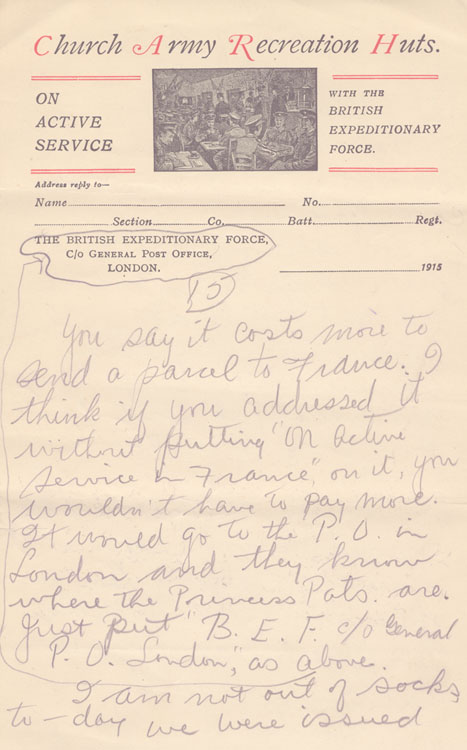 Church Army Recreation Huts.
ON
ACTIVE
SERVICE
WITH THE
BRITISH
EXPEDITIONARY
FORCE.
Address reply to—
Name No.
Section Co. Batt. Regt.
THE BRITISH EXPEDITIONARY FORCE,
C/o GENERAL POST OFFICE,
LONDON.
1915
5
You say it costs more to
send a parcel to France. I
think if you addressed it
without putting "On Active
Service in France", on it, you
wouldn't have to pay more.
It would go to the P. O. in
London and they know
where the Princess Pats. are.
Just put "B. E. F. c/o General
P. O. London", as above.
I am not out of socks
to-day we were issued